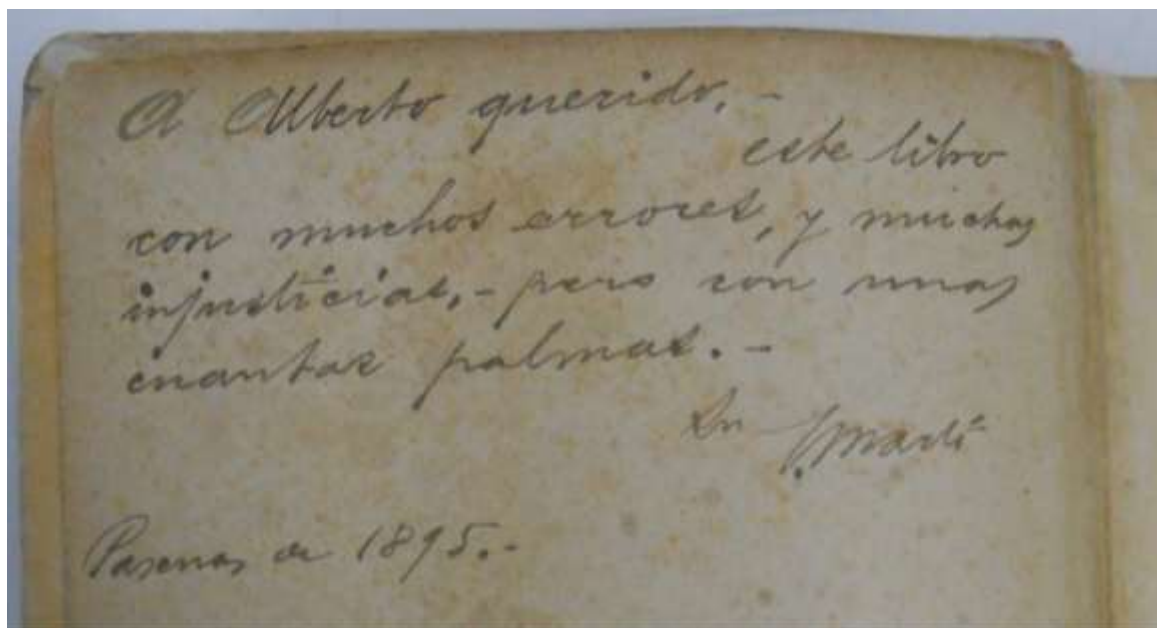 A Alberto querido, -
este libro
con muchos errores, y muchas
injusticias, - pero con unas
cuantas palmas. -
Su J. Martí
Pascuas de 1895. -